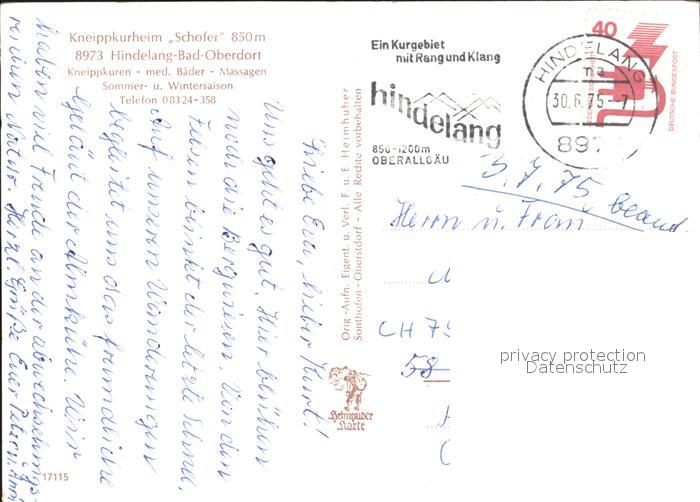 Kneippkurheim „Schofer" 850 m
8973 Hindelang-Bad-Oberdorf
Kneippkuren - med. Bäder - Massagen
Sommer- u. Wintersaison
Telefon 08324-358
Ein Kurgebiet
mit Rang und Klang
hindelang
850-1200m
OBERALLGÄU
HINDELANG
30.6.75-7
897
40
DEUTSCHE BUNDESPOST
Orig.-Aufn. Eigent. u. Verl. F. u. E. Heimhuber
Sonthofen-Oberstdorf - Alle Rechte vorbehalten
Heimhuber
Karte
Liebe Eva, lieber Kurt!
Uns geht es gut. Hier blühen
noch die Bergwiesen. Von den
Felsen blinkt der letzte Schnee.
Auf unseren Wanderungen
begleitet uns das freundliche
Geläut der Almkühe. Wir
haben viel Freude an der abwechslungs-
reichen Natur. Herzl. Grüße Euer
3.7.75 beand.
Herrn u. Frau
CH 79
58
17115
privacy protection
Datenschutz